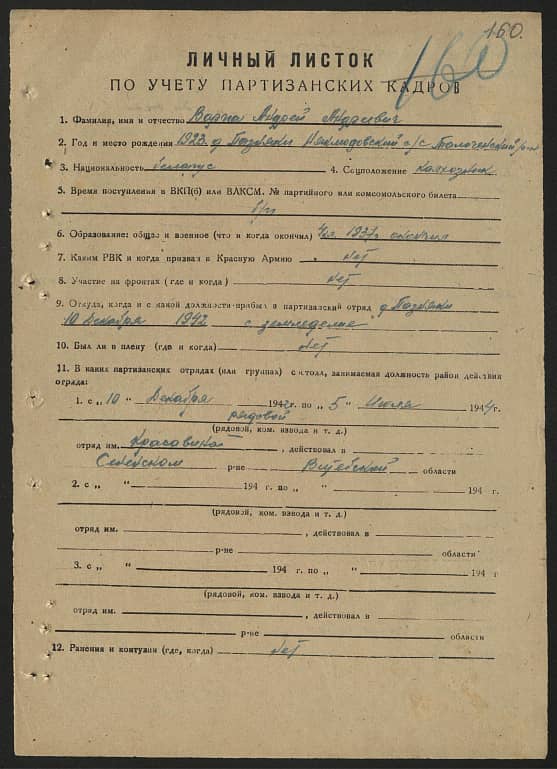 160.
160
ЛИЧНЫЙ ЛИСТОК
ПО УЧЕТУ ПАРТИЗАНСКИХ КАДРОВ
1. Фамилия, имя и отчество Андрей Андреевич
2. Год и место рождения 1923 д Позняки с/с Толочинский р-н
3. Национальность беларус 4. Соцположение колхозник
5. Время поступления в ВКП(б) или ВЛКСМ. № партийного или комсомольского билета
б/п
6. Образование: общее и военное (что и когда окончил) 4кл. 1937г окончил
7. Каким РВК и когда призван в Красную Армию нет
8. Участие на фронтах (где и когда) нет
9. Откуда, когда и с какой должности прибыл в партизанский отряд д Позняки
10 Декабря 1942 с земледелие
10. Был ли в плену (где и когда) Нет
11. В каких партизанских отрядах (или группах) состоял, занимаемая должность район действия
отряда:
1. с „ 10 " Декабря 1942 г. по „ 5 " Июля 1944 г.
рядовой
(рядовой, ком. взвода и т. д.)
отряд им. , действовал в
Сененском р-не Витебской области
2. с „ " 194 г. по „ " 194 г.
(рядовой, ком. взвода и т. д.)
отряд им. , действовал в
р-не области
3. с „ " 194 г. по „ " 194 г
(рядовой, ком. взвода и т. д.)
отряд им. , действовал в
р-не области
12. Ранения и контузии (где, когда) нет